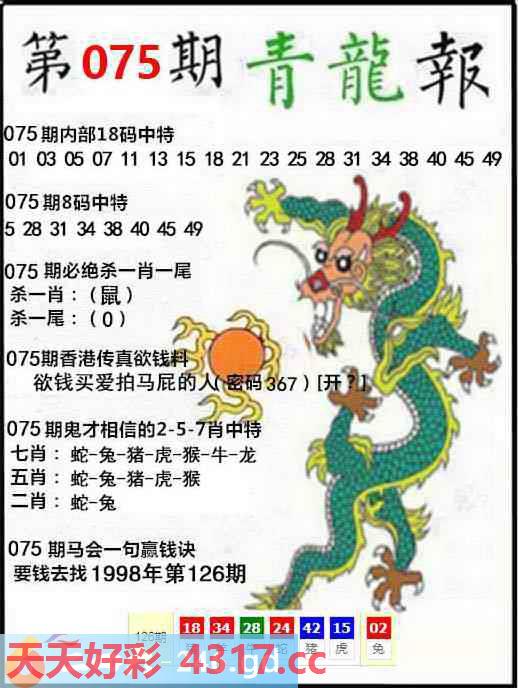 第075期青龍報
075期内部18码中特
01 03 05 07 11 13 15 18 21 23 25 28 31 34 38 40 45 49
075期8码中特
5 28 31 34 38 40 45 49
075期必绝杀一肖一尾
杀一肖：（鼠）
杀一尾：（0）
075期香港传真欲钱料
欲钱买爱拍马屁的人(密码367)[开?]
075期鬼才相信的2-5-7肖中特
七肖：蛇-兔-猪-虎-猴-牛-龙
五肖：蛇-兔-猪-虎-猴
二肖：蛇-兔
075期马会一句赢钱诀
要钱去找1998年第126期
126期 18 34 28 24 42 15 02
蛇 猪 虎 兔
天天好彩 4317.cc